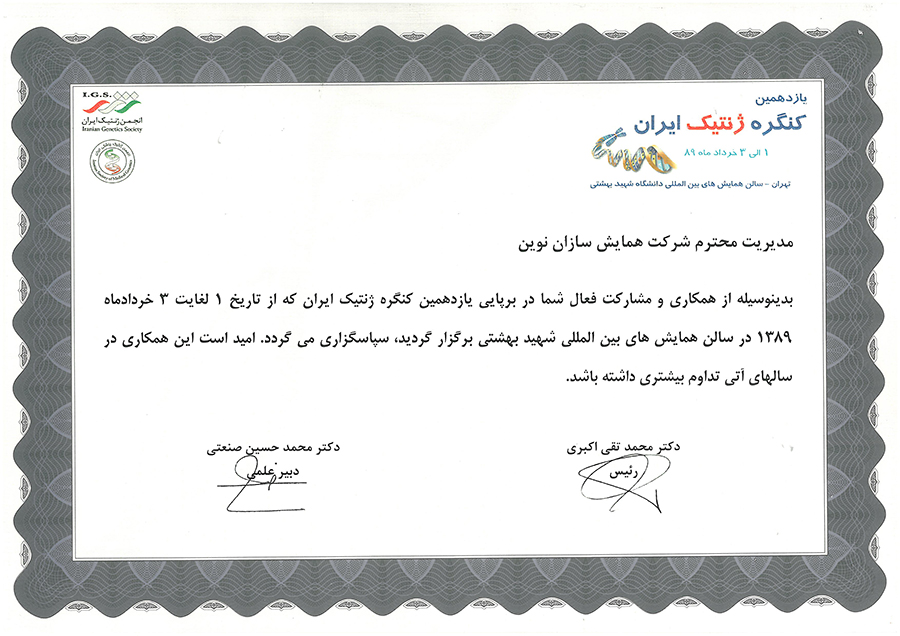 یازدهمین
کنگره ژنتیک ایران
۱ الی ۳ خرداد ماه ۸۹
تهران - سالن همایش های بین المللی دانشگاه شهید بهشتی
I.G.S.
انجمن ژنتیک ایران
Iranian Genetics Society
مدیریت محترم شرکت همایش سازان نوین
بدینوسیله از همکاری و مشارکت فعال شما در برپایی یازدهمین کنگره ژنتیک ایران که از تاریخ ۱ لغایت ۳ خردادماه
۱۳۸۹ در سالن همایش های بین المللی شهید بهشتی برگزار گردید، سپاسگزاری می گردد. امید است این همکاری در
سالهای آتی تداوم بیشتری داشته باشد.
دکتر محمد تقی اکبری
رئیس
دکتر محمد حسین صنعتی
دبیر علمی